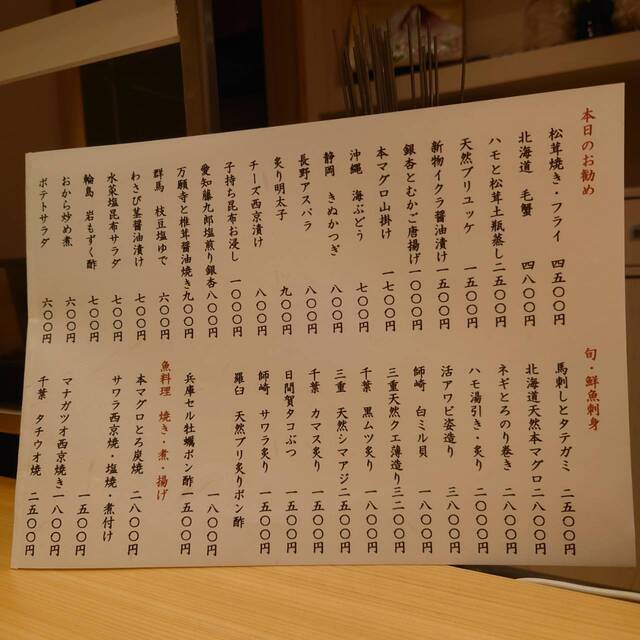 本日のお勧め
松茸焼き・フライ 四五〇〇円
北海道 毛蟹 四八〇〇円
ハモと松茸土瓶蒸し 二五〇〇円
天然ブリユッケ 一五〇〇円
新物イクラ醤油漬け 一五〇〇円
銀杏とむかご唐揚げ 一〇〇〇円
本マグロ山掛け 一七〇〇円
沖縄 海ぶどう 七〇〇円
静岡 きぬかつぎ 八〇〇円
長野アスパラ 八〇〇円
炙り明太子 九〇〇円
チーズ西京漬け 八〇〇円
子持ち昆布お浸し 一〇〇〇円
愛知藤九郎塩煎り銀杏 八〇〇円
万願寺と椎茸醤油焼き 九〇〇円
群馬 枝豆塩ゆで 六〇〇円
わさび茎醤油漬け 七〇〇円
水菜塩昆布サラダ 七〇〇円
輪島 岩もずく酢 七〇〇円
おから炒め煮 六〇〇円
ポテトサラダ 六〇〇円
旬・鮮魚刺身
馬刺しとタテガミ 二五〇〇円
北海道天然本マグロ 二八〇〇円
ネギとろのり巻き 二八〇〇円
ハモ湯引き・炙り 二〇〇〇円
活アワビ姿造り 三八〇〇円
師崎 白ミル貝 一八〇〇円
三重天然クエ薄造り 三二〇〇円
千葉 黒ムツ炙り 一八〇〇円
三重 天然シマアジ 二五〇〇円
千葉 カマス炙り 一五〇〇円
日間賀タコぶつ 一五〇〇円
師崎 サワラ炙り 一五〇〇円
羅臼 天然ブリ炙りポン酢
一八〇〇円
兵庫セル牡蠣ポン酢 一五〇〇円
魚料理 焼き・煮・揚げ
本マグロとろ炭焼 二八〇〇円
サワラ西京焼・塩焼・煮付け
一五〇〇円
マナガツオ西京焼き 一八〇〇円
千葉 タチウオ焼 二五〇〇円